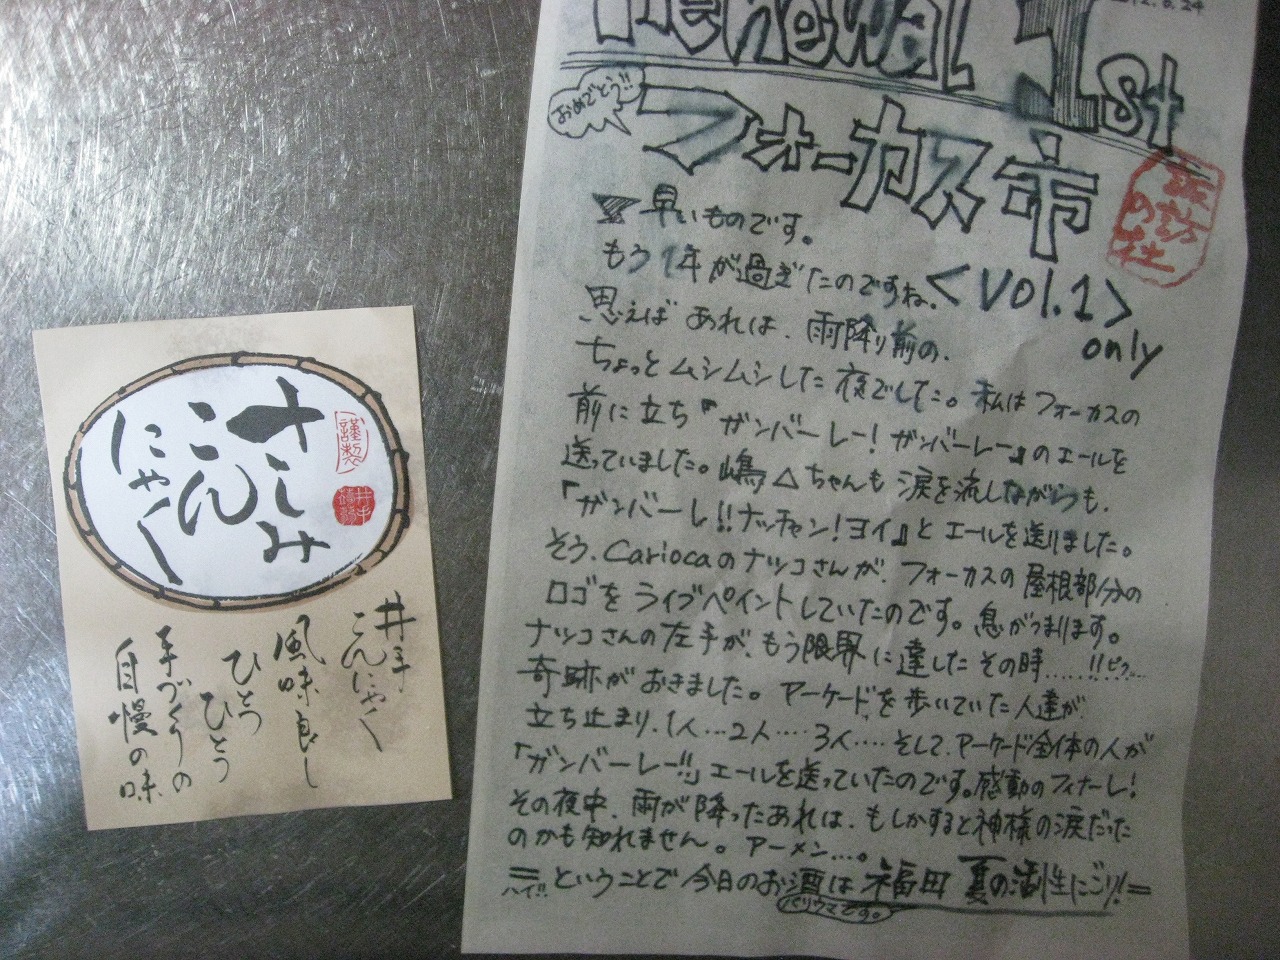 謹製
さしみ
こん
にゃく
井手
こんにゃく
風味良し
ひとつ
ひとつ
手づくりの
自慢の味
Renewal 1st
おめでとう!!
フォーカス市
諏訪
の杜
早いものです。
もう1年が過ぎたのですね.
<Vol.1>
only
思えば あれは、雨降り前の、
ちょっとムシムシした夜でした。私はフォーカスの
前に立ち『ガンバーレー!ガンバーレー』のエールを
送っていました。嶋△ちゃんも涙を流しながらも、
『ガンバーレ!!ナッチャン!ヨイ』とエールを送りました。
そう、Cariocaのナツコさんが、フォーカスの屋根部分の
ロゴをライブペイントしていたのです。息がつまります。
ナツコさんの左手が、もう限界に達したその時……!!ピクッ…
奇跡がおきました。アーケードを歩いていた人達が
立ち止まり、1人…2人….3人….そして、アーケード全体の人が
「ガンバーレー!!」エールを送っていたのです。感動のフィナーレ!
その夜中、雨が降ったあれは、もしかすると神様の涙だった
のかも知れません。アーメン…。
=ということで今日のお酒は福田 夏の活性にごり!!=
ハイ!!
バリウマです。